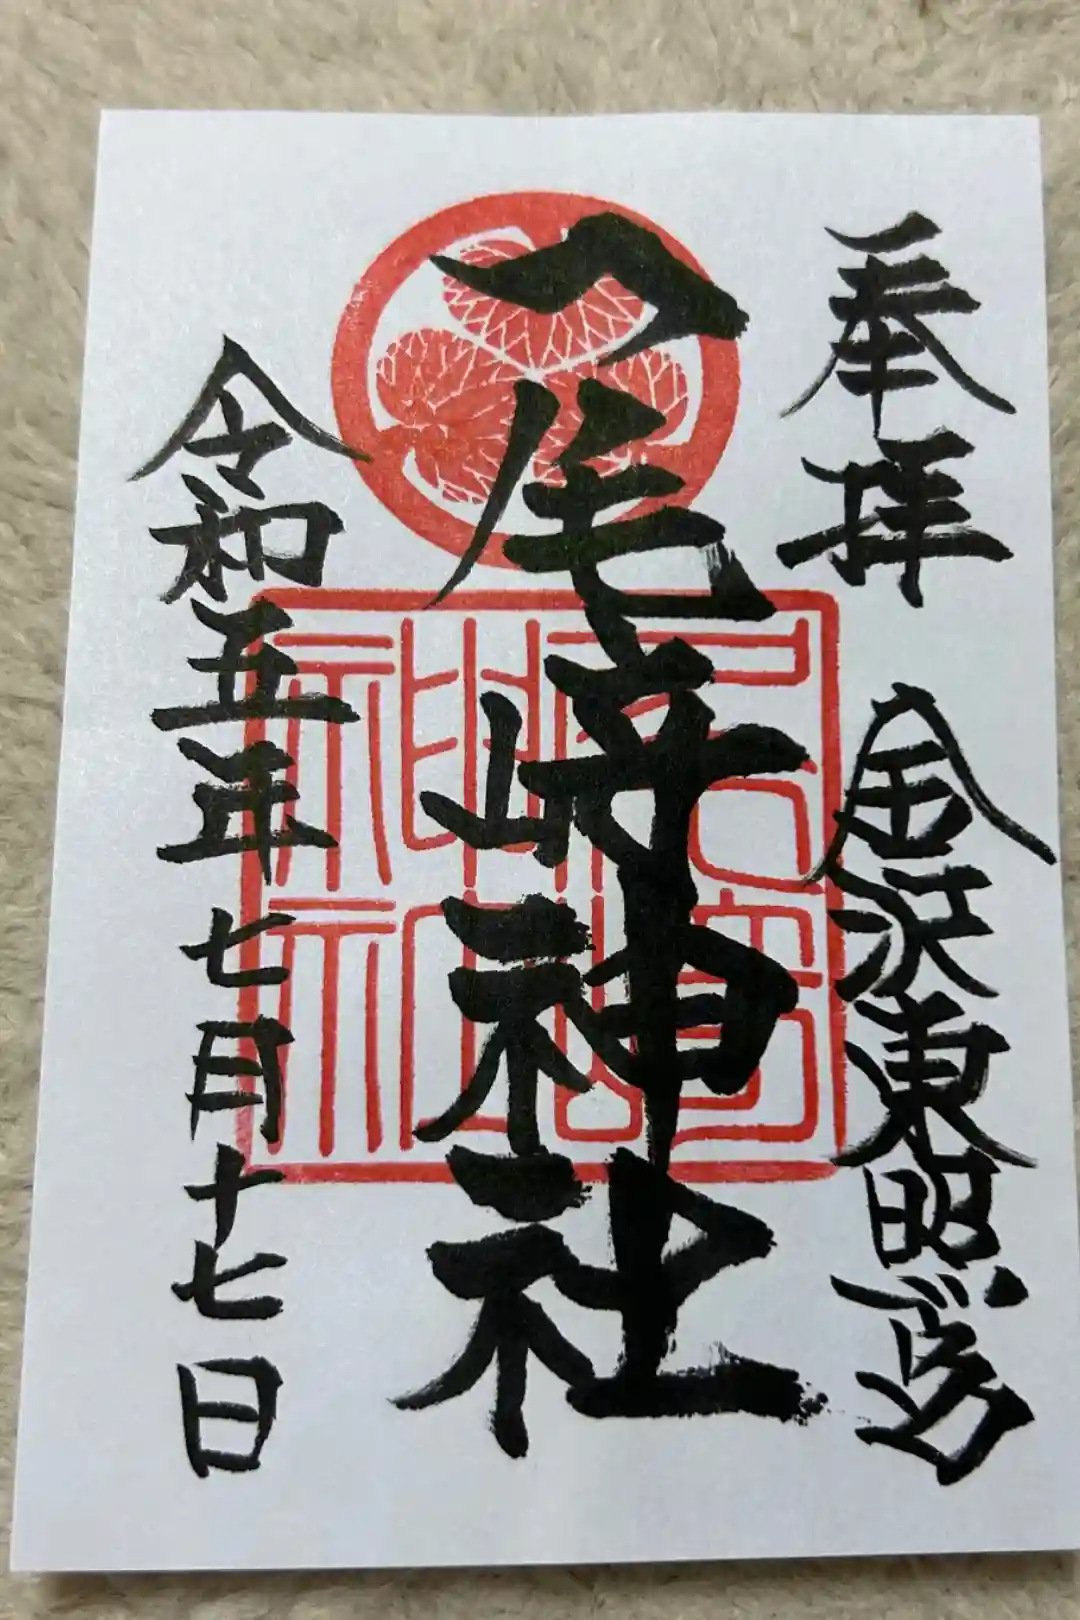 奉拝
金沢東照宮
尾﨑神社
尾﨑神社
令和五年七月十七日